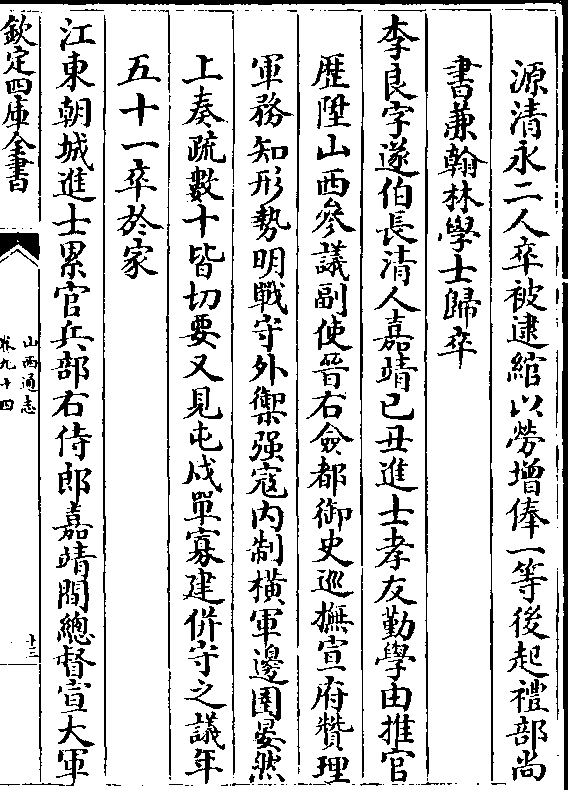 源清永二人卒被逮綰以勞增俸一等後起禮部尚
書兼翰林學士歸卒
李良字遂伯長清人嘉靖已丑進士孝友勤學由推官
歴陞山西參議副使晉右僉都御史巡撫宣府贊理
軍務知形勢明戰守外禦强寇内制橫軍邊圉晏然
上奏疏數十皆切要又見屯戍單寡建併守之議年
五十一卒於家
江東朝城進士累官兵部右侍郎嘉靖間總督宣大軍
欽定四庫全書
山西通志
卷九十四
十三